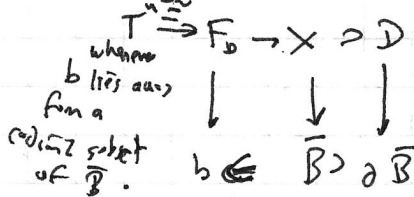 T ⇉ F_b → X ⊃ D
whenever
b lies away
from a
codim 2 subset
of B̅.
↓ ↓ ↓
b ∈ B̅ ⊃ ∂B̅